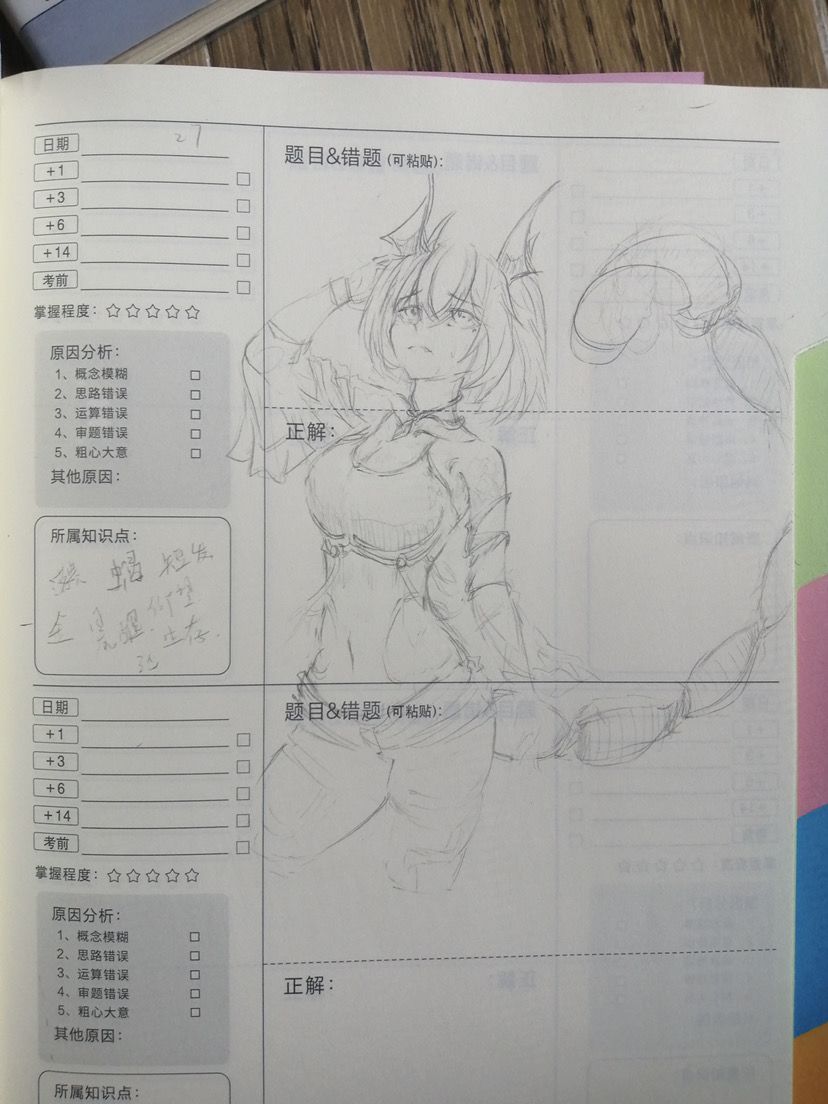 日期 27
+1
+3
+6
+14
考前
掌握程度：☆☆☆☆☆
原因分析：
1、概念模糊 □
2、思路错误 □
3、运算错误 □
4、审题错误 □
5、粗心大意 □
其他原因：
所属知识点：
蝎 短发
仰望
生存
题目&错题 (可粘贴)：
正解：
日期
+1
+3
+6
+14
考前
掌握程度：☆☆☆☆☆
原因分析：
1、概念模糊 □
2、思路错误 □
3、运算错误 □
4、审题错误 □
5、粗心大意 □
其他原因：
所属知识点：
题目&错题 (可粘贴)：
正解：